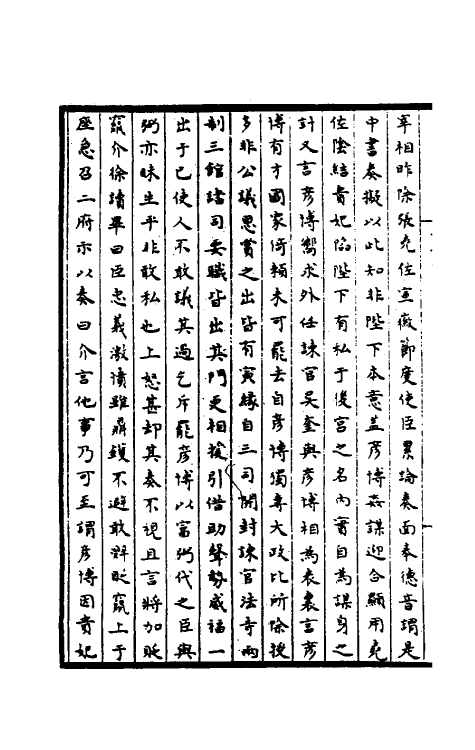 宰相昨除張堯佐宣徽節度使臣累論奏面奉德音謂是
中書奏擬以此知非陛下本意蓋彥博姦謀迎合顯用堯
佐陰結貴妃陷陛下有私于後宮之名內實自為謀身之
計又言彥博嚮求外任諫官吳奎與彥博相為表裏言彥
博有才國家倚賴未可罷去自彥博獨專大政比所除授
多非公議恩賞之出皆有夤緣自三司開封諫官法寺兩
制三館諸司要職皆出其門更相援引借助聲勢威福一
出于已使人不敢議其過乞斥罷彥博以富弼代之臣與
弼亦昧生平非敢私也上怒甚却其奏不視且言將加貶
竄介徐讀畢曰臣忠義激憤雖鼎鑊不避敢辭貶竄上于
座急召二府示以奏曰介言他事乃可至謂彥博因貴妃